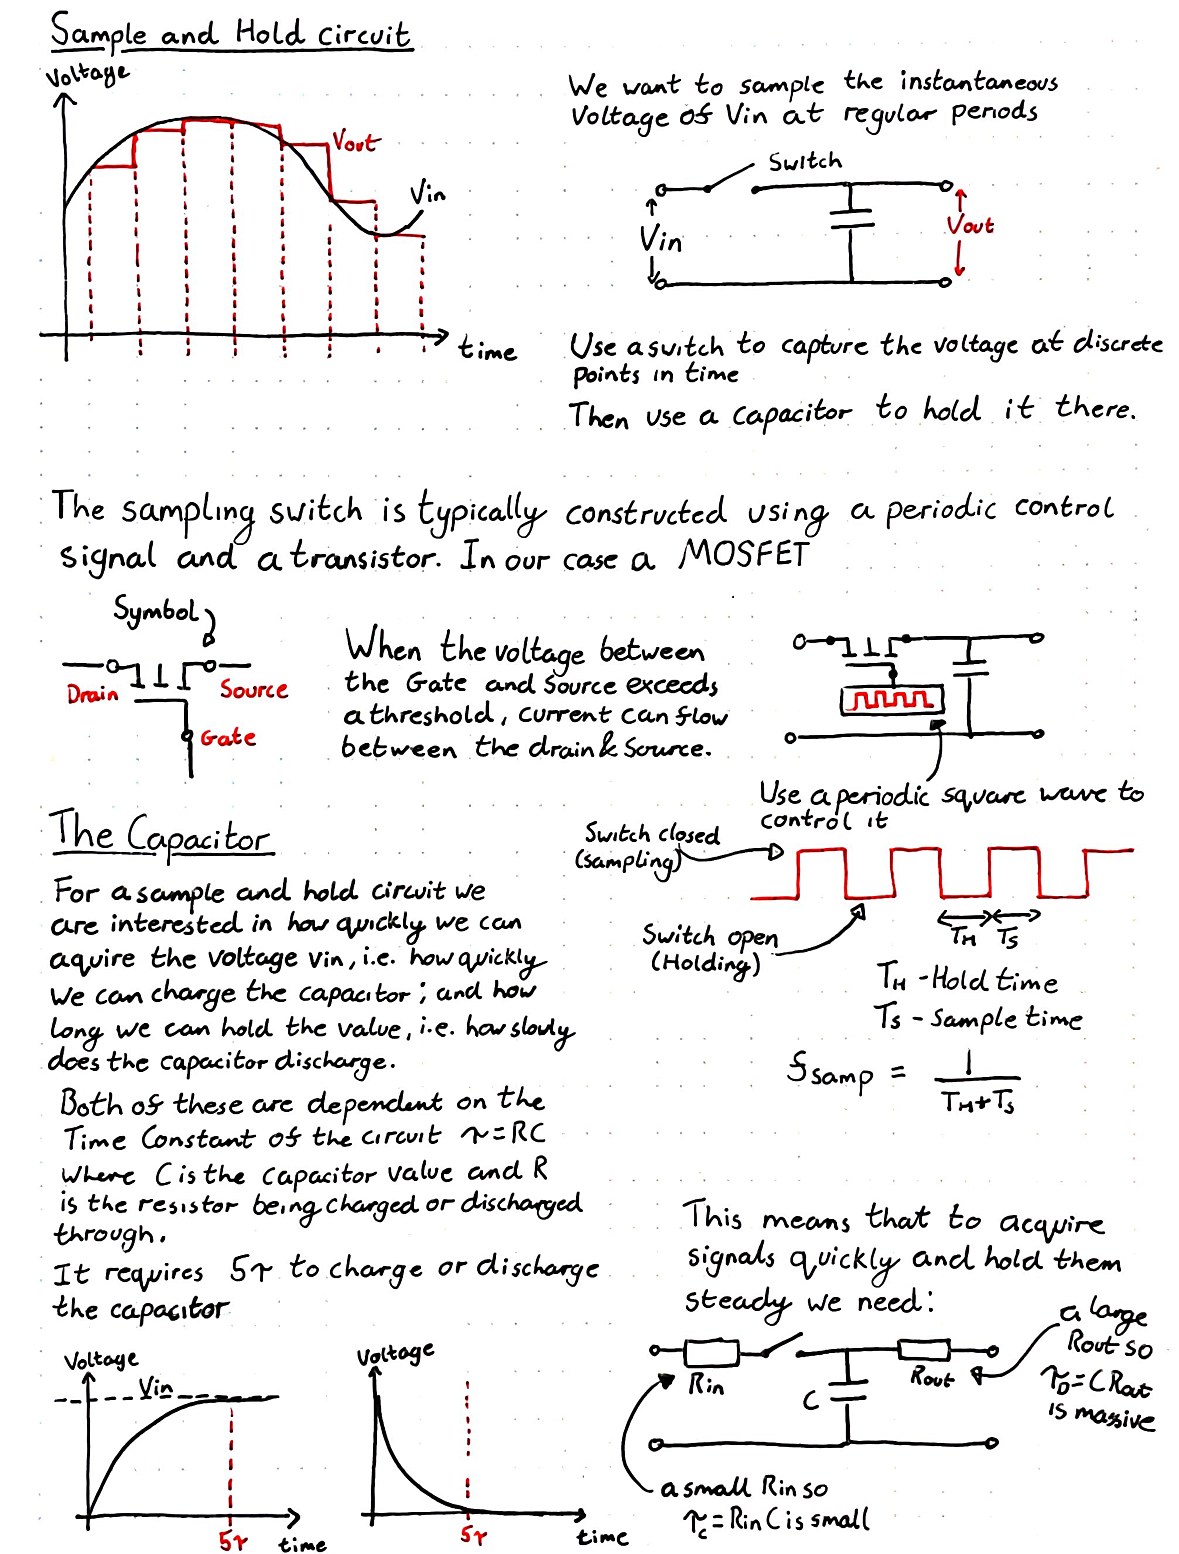 Sample and Hold circuit
Voltage
Vout
Vin
time
We want to sample the instantaneous
Voltage of Vin at regular periods
Switch
Vin
Vout
Use a switch to capture the voltage at discrete
points in time
Then use a capacitor to hold it there.
The sampling switch is typically constructed using a periodic control
signal and a transistor. In our case a MOSFET
Symbol
Drain
Source
Gate
When the voltage between
the Gate and Source exceeds
a threshold, current can flow
between the drain & Source.
Use a periodic square wave to
control it
Switch closed
(sampling)
Switch open
(Holding)
TH TS
TH - Hold time
TS - Sample time
fsamp = 1
TH+TS
The Capacitor
For a sample and hold circuit we
are interested in how quickly we can
aquire the voltage vin, i.e. how quickly
we can charge the capacitor; and how
long we can hold the value, i.e. how slowly
does the capacitor discharge.
Both of these are dependent on the
Time Constant of the circuit τ=RC
Where C is the capacitor value and R
is the resistor being charged or discharged
through.
It requires 5τ to charge or discharge
the capacitor
Voltage
Vin
5τ
time
Voltage
5τ
time
This means that to acquire
signals quickly and hold them
steady we need:
a large
Rout so
τD=CRout
is massive
Rin
C
Rout
a small Rin so
τc=RinC is small